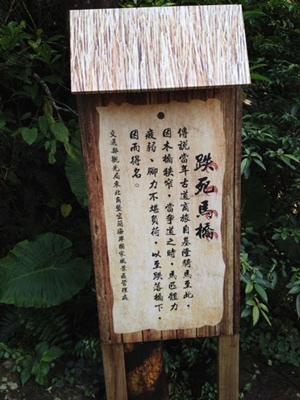 跌死馬橋
傳說當年古道商旅自基隆騎馬至此，
因木橋狹窄，當爭道之時，馬匹體力
疲弱、腳力不堪負荷，以至跌落橋下，
因而得名。
交通部觀光局東北角暨宜蘭海岸國家風景區管理處